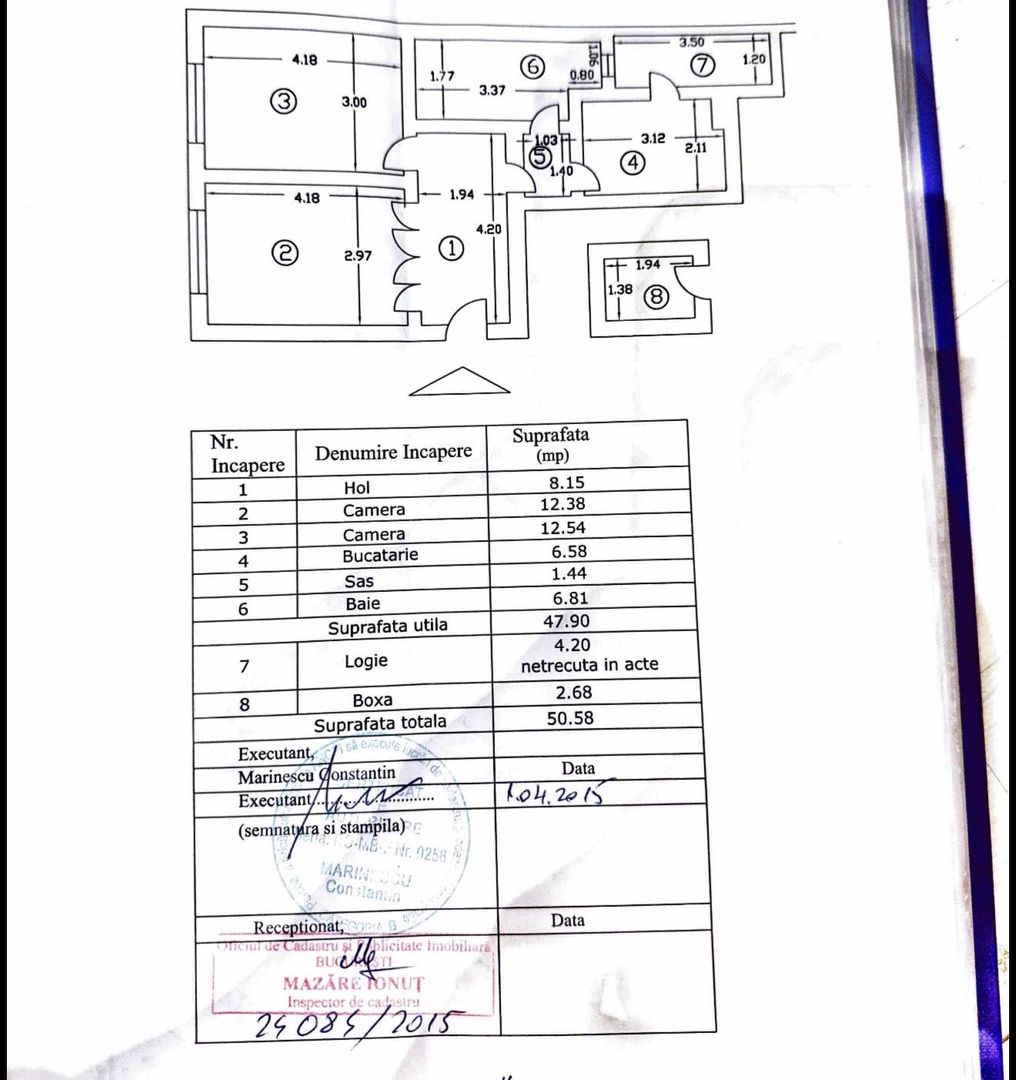 4.18
3
3.00
1.77
6
3.37
1.06
0.80
3.50
7
1.20
1.03
5
1.40
3.12
4
2.11
4.18
2
2.97
1.94
1
4.20
1.94
1.38
8
Nr. Incapere Denumire Incapere Suprafata (mp)
1 Hol 8.15
2 Camera 12.38
3 Camera 12.54
4 Bucatarie 6.58
5 Sas 1.44
6 Baie 6.81
Suprafata utila 47.90
7 Logie 4.20 netrecuta in acte
8 Boxa 2.68
Suprafata totala 50.58
Executant,
Marinescu Constantin Data
Executant............................ 1.04.2015
(semnatura si stampila)
să execute lucrări de
Nr. 0256
MARINESCU
Constantin
CATEGORIA B
Receptionat, Data
Oficiul de Cadastru și Publicitate Imobiliară
BUCUREȘTI
MAZĂRE IONUȚ
Inspector de cadastru
24084/2015